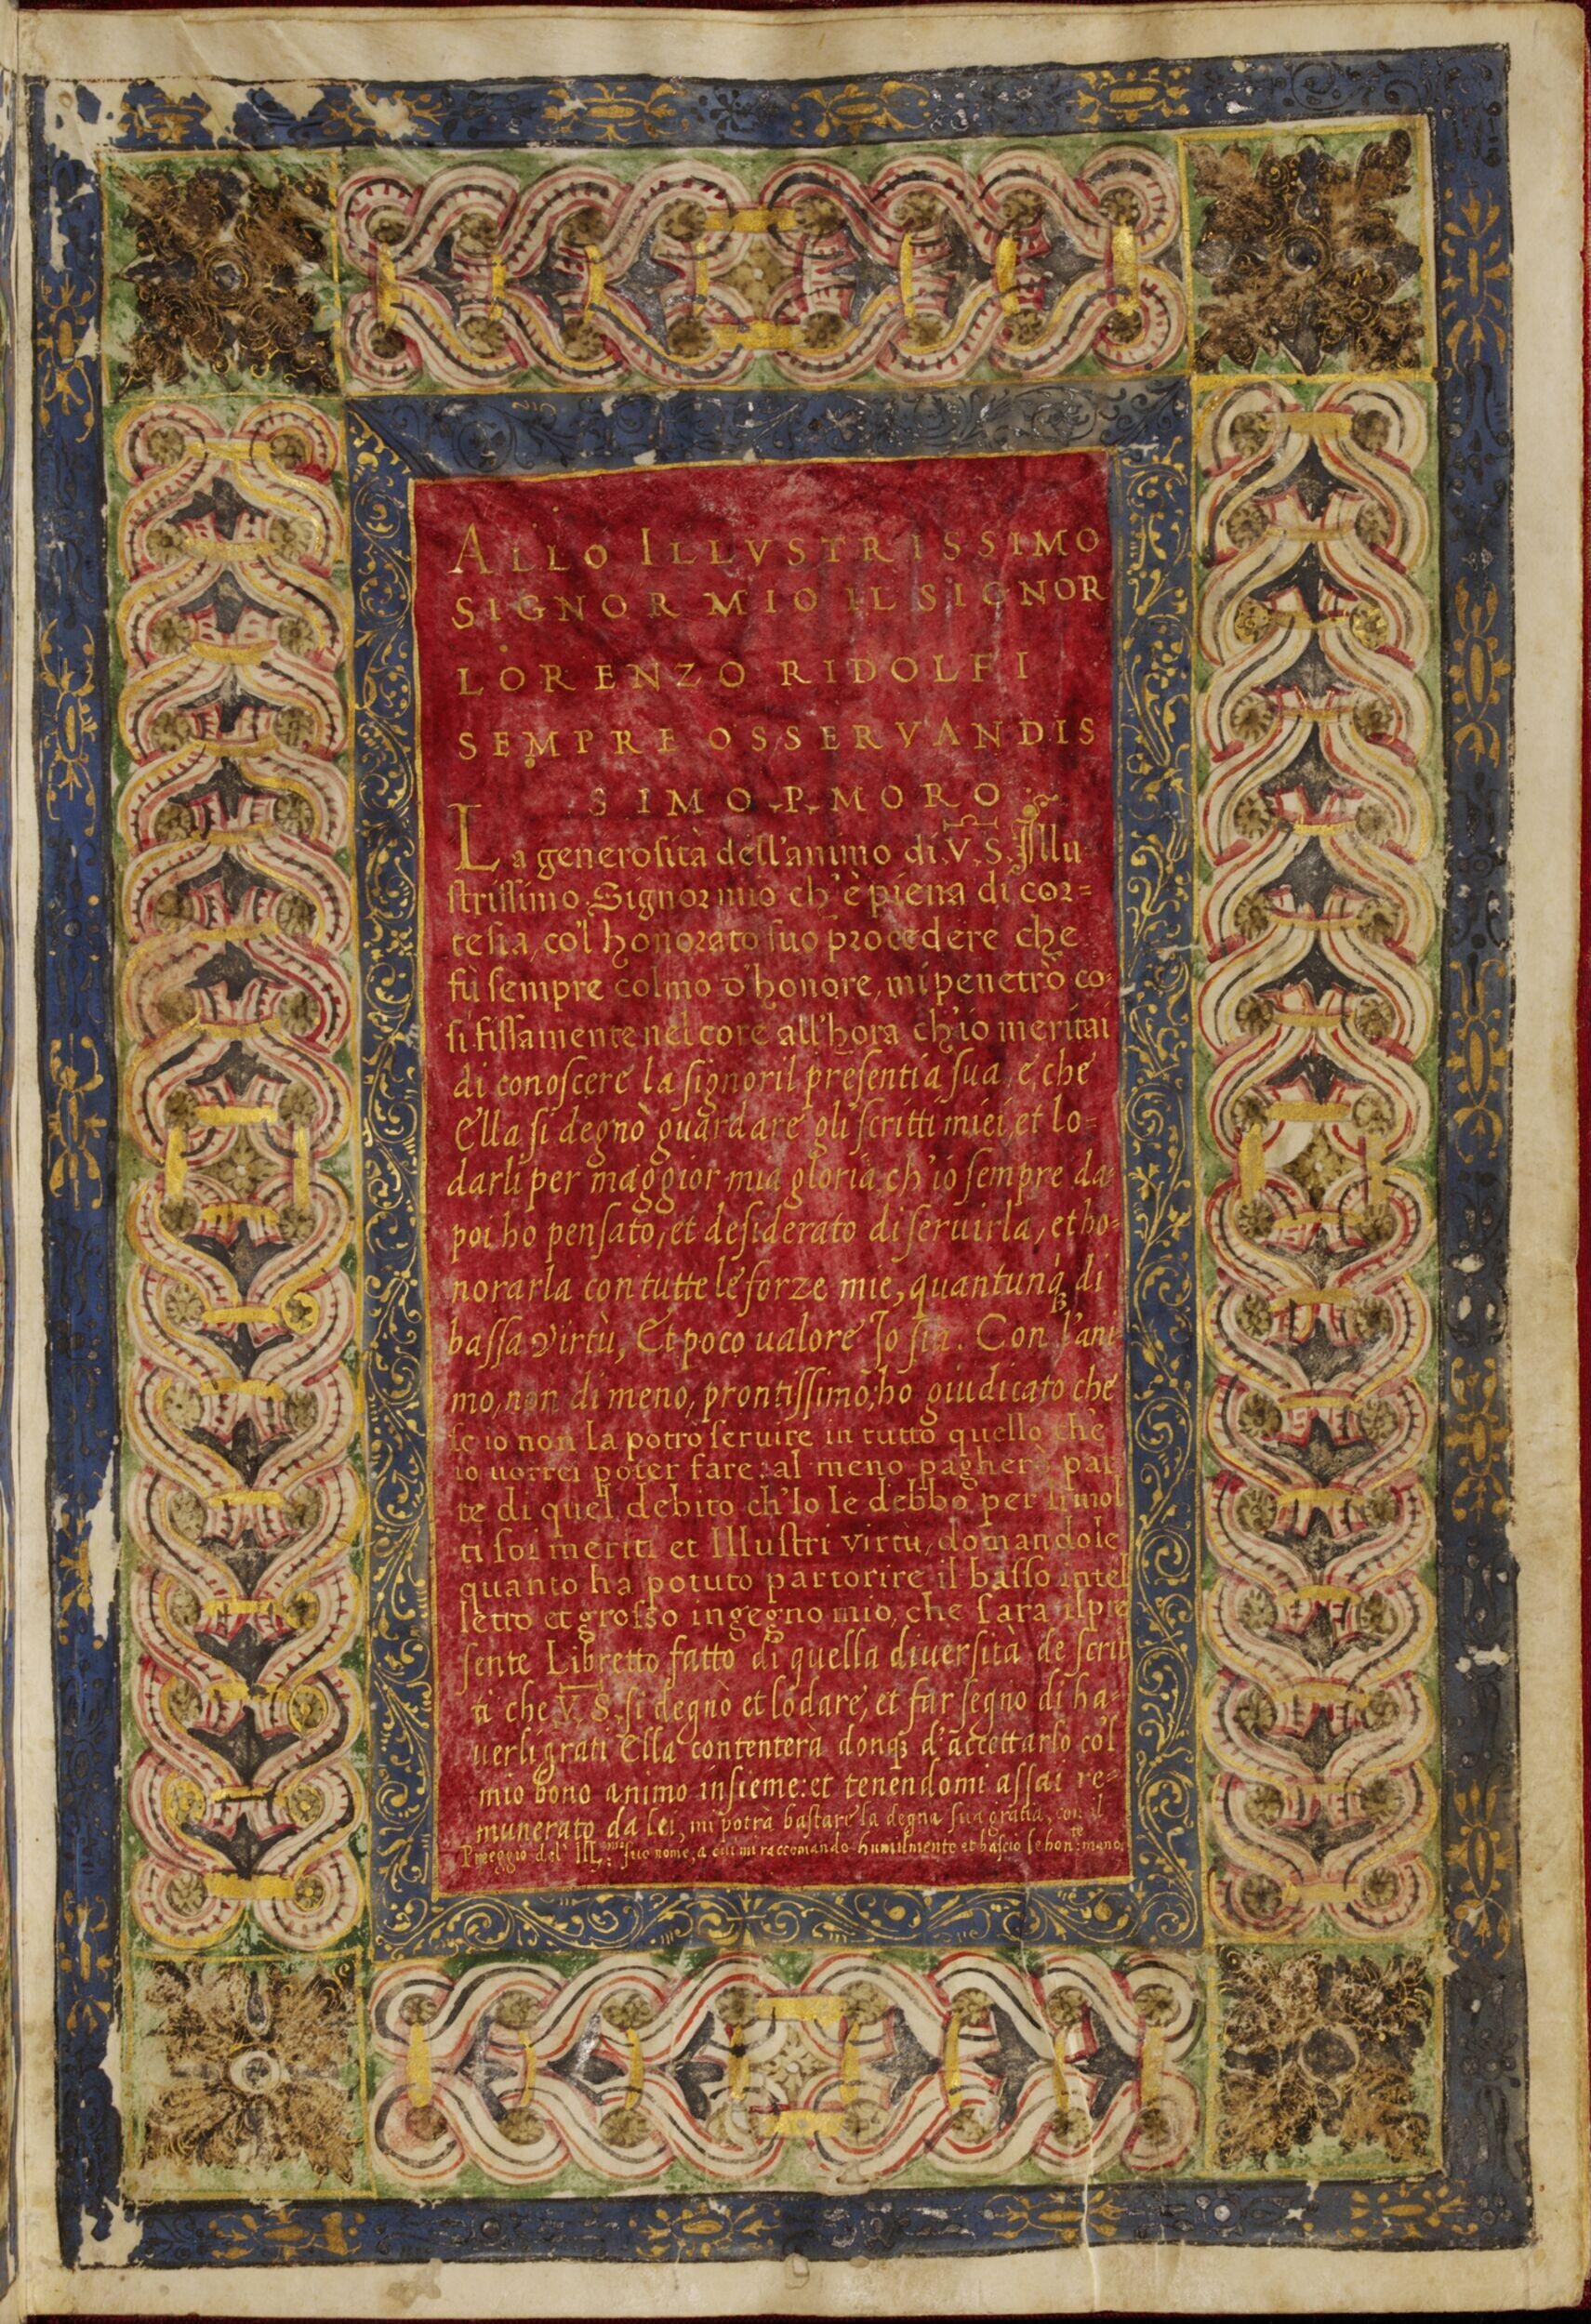 ALLO ILLVSTRISSIMO
SIGNOR MIO IL SIGNOR
LORENZO RIDOLFI
SEMPRE OSSERVANDIS
SIMO P. MORO
La generosità dell'animo di V. S. Illu
strissimo Signor mio ch'è piena di cor=
tesia, co'l honorato suo procedere che
fù sempre colmo d'honore, mi penetrò co=
si fissamente nel core all'hora ch'io meritai
di conoscere la signoril presentia sua, e, che
Ella si degnò guardare gli scritti miei, et lo=
darli per maggior mia gloria, ch'io sempre da
poi ho pensato, et desiderato di seruirla, et ho=
norarla con tutte le forze mie, quantunq̃ di
bassa virtù, Et poco ualore Io sia. Con l'ani
mo, non di meno, prontissimo, ho giudicato che
se io non la potro seruire in tutto quello che
io uorrei poter fare: al meno pagherò par
te di quel debito ch'Io le debbo per li mol
ti soi meriti et Illustri virtù, domandole
quanto ha potuto partorire il basso intel
letto et grosso ingegno mio, che sara il pre
sente Libretto fatto di quella diuersità de scrit
ti che V. S. si degnò et lodare, et far segno di ha=
uerli grati Ella contenterà donqꝫ d'accettarlo co'l
mio bono animo insieme: et tenendomi assai re=
munerato da lei, mi potrà bastare la degna sua gratia, con il
Preggio del ILL.mo suo nome, a cui mi raccomando humilmente et bascio le hon.te mano.
9